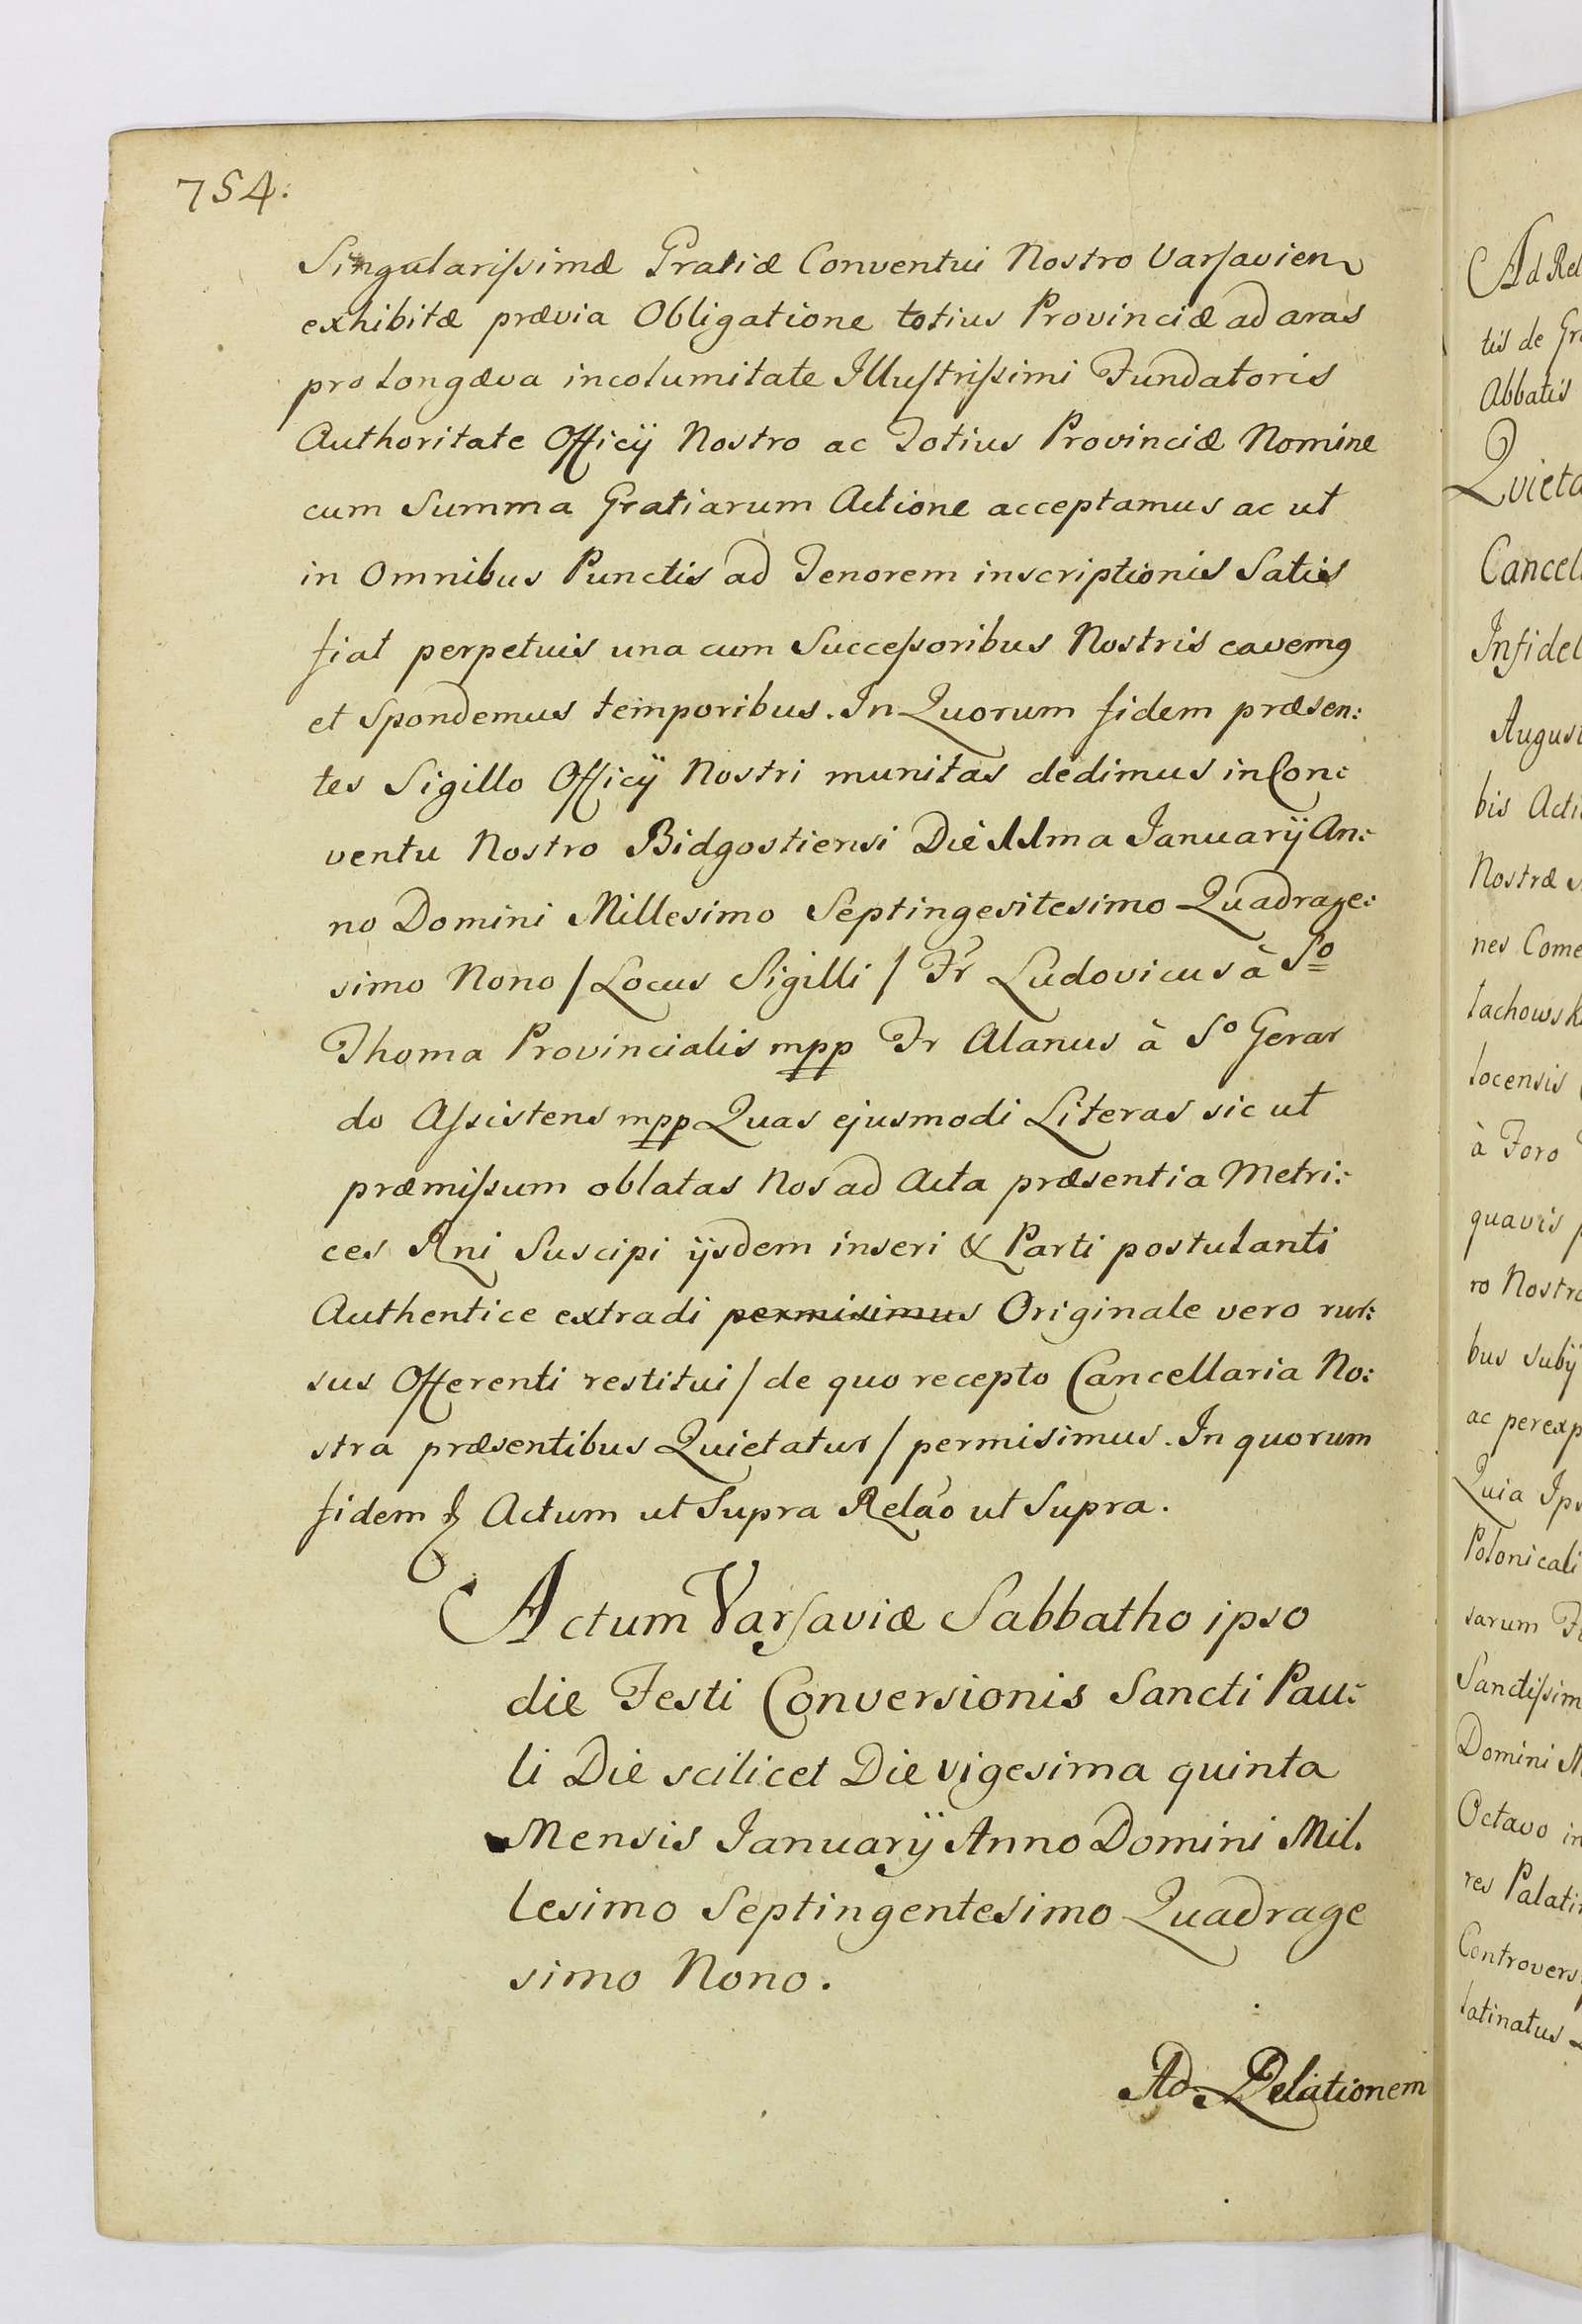 754.
Singularissimæ Gratiæ Conventui Nostro Varsavien
exhibitæ prævia Obligatione totius Provinciæ ad aras
pro longæva incolumitate Illustrissimi Fundatoris
Authoritate Officij Nostro ac Totius Provinciæ Nomine
cum Summa Gratiarum Actione acceptamus ac ut
in Omnibus Punctis ad Tenorem inscriptionis Satis
fiat perpetuis una cum Successoribus Nostris cavemq
et Spondemus temporibus. In Quorum fidem præsen:
tes Sigillo Officij Nostri munitas dedimus in Con:
ventu Nostro Bidgostiensi Die 11ma Januarij An:
no Domini Millesimo Septingesitesimo Quadrage:
simo Nono / Locus Sigilli / Fr Ludovicus à So
Thoma Provincialis mpp Fr Alanus à So Gerar
do Assistens mpp Quas ejusmodi Literas sic ut
præmissum oblatas Nos ad Acta præsentia Metri:
ces Rni Suscipi ijsdem inseri & Parti postulanti
Authentice extradi permisimus Originale vero rur:
sus Offerenti restitui / de quo recepto Cancellaria No:
stra præsentibus Quietatur / permisimus. In quorum
fidem Actum ut Supra Relao ut Supra.
Actum Varsaviæ Sabbatho ipso
die Festi Conversionis Sancti Pau:
li Die scilicet Die vigesima quinta
Mensis Januarij Anno Domini Mil.
lesimo Septingentesimo Quadrage
simo Nono.
Ad Relationem
Ad Rel
tis de Gr
Abbatis
Quieta
Cancel
Infidel
August
bis Acti
Nostræ
nes Come
tachowsk
locensis
à Foro
quavis
ro Nostro
bus subij
ac perexp
Quia Ips
Polonicali
sarum
Sanctissim
Domini M
Octavo in
res Palati
Controvers
latinatus